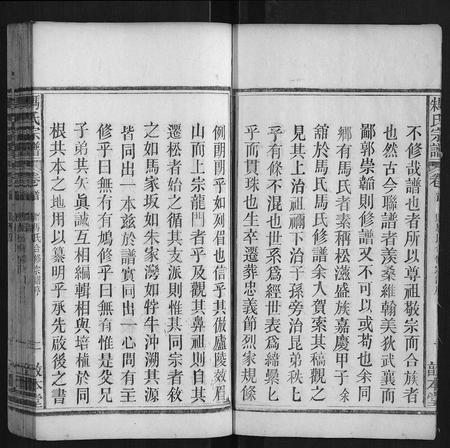 不修哉譜也者所以尊祖敬宗而合族者
也然古今聯譜者羨桑維翰美狄武襄而
鄙郭崇韜則修譜又不可以或苟也余同
鄉有馬氏者素稱松滋盛族嘉慶甲子余
館於馬氏馬氏修譜余入賀索其稿觀之
見其上治祖禰下治子孫旁治昆弟秩匕
乎有條不混也世系為經世表為緯纍匕
乎而貫珠也生卒遷葬忠義節烈家規條
例朗朗乎如列眉也信乎其倣廬陵效眉
山而上宗龍門者乎及觀其鼻祖則自其
遷松者始之循其支派則惟其同宗者敘
之如馬家坂如朱家灣如牸牛沖溯其源
皆同出一本茲於譜實同出一心問有王
修乎曰無有有鳩修乎曰無有惟是父兄
子弟其矢眞誠互相編輯相與培植於同
根共本之地用以纂明乎承先啟後之書
馬氏宗譜 卷首
敦本堂